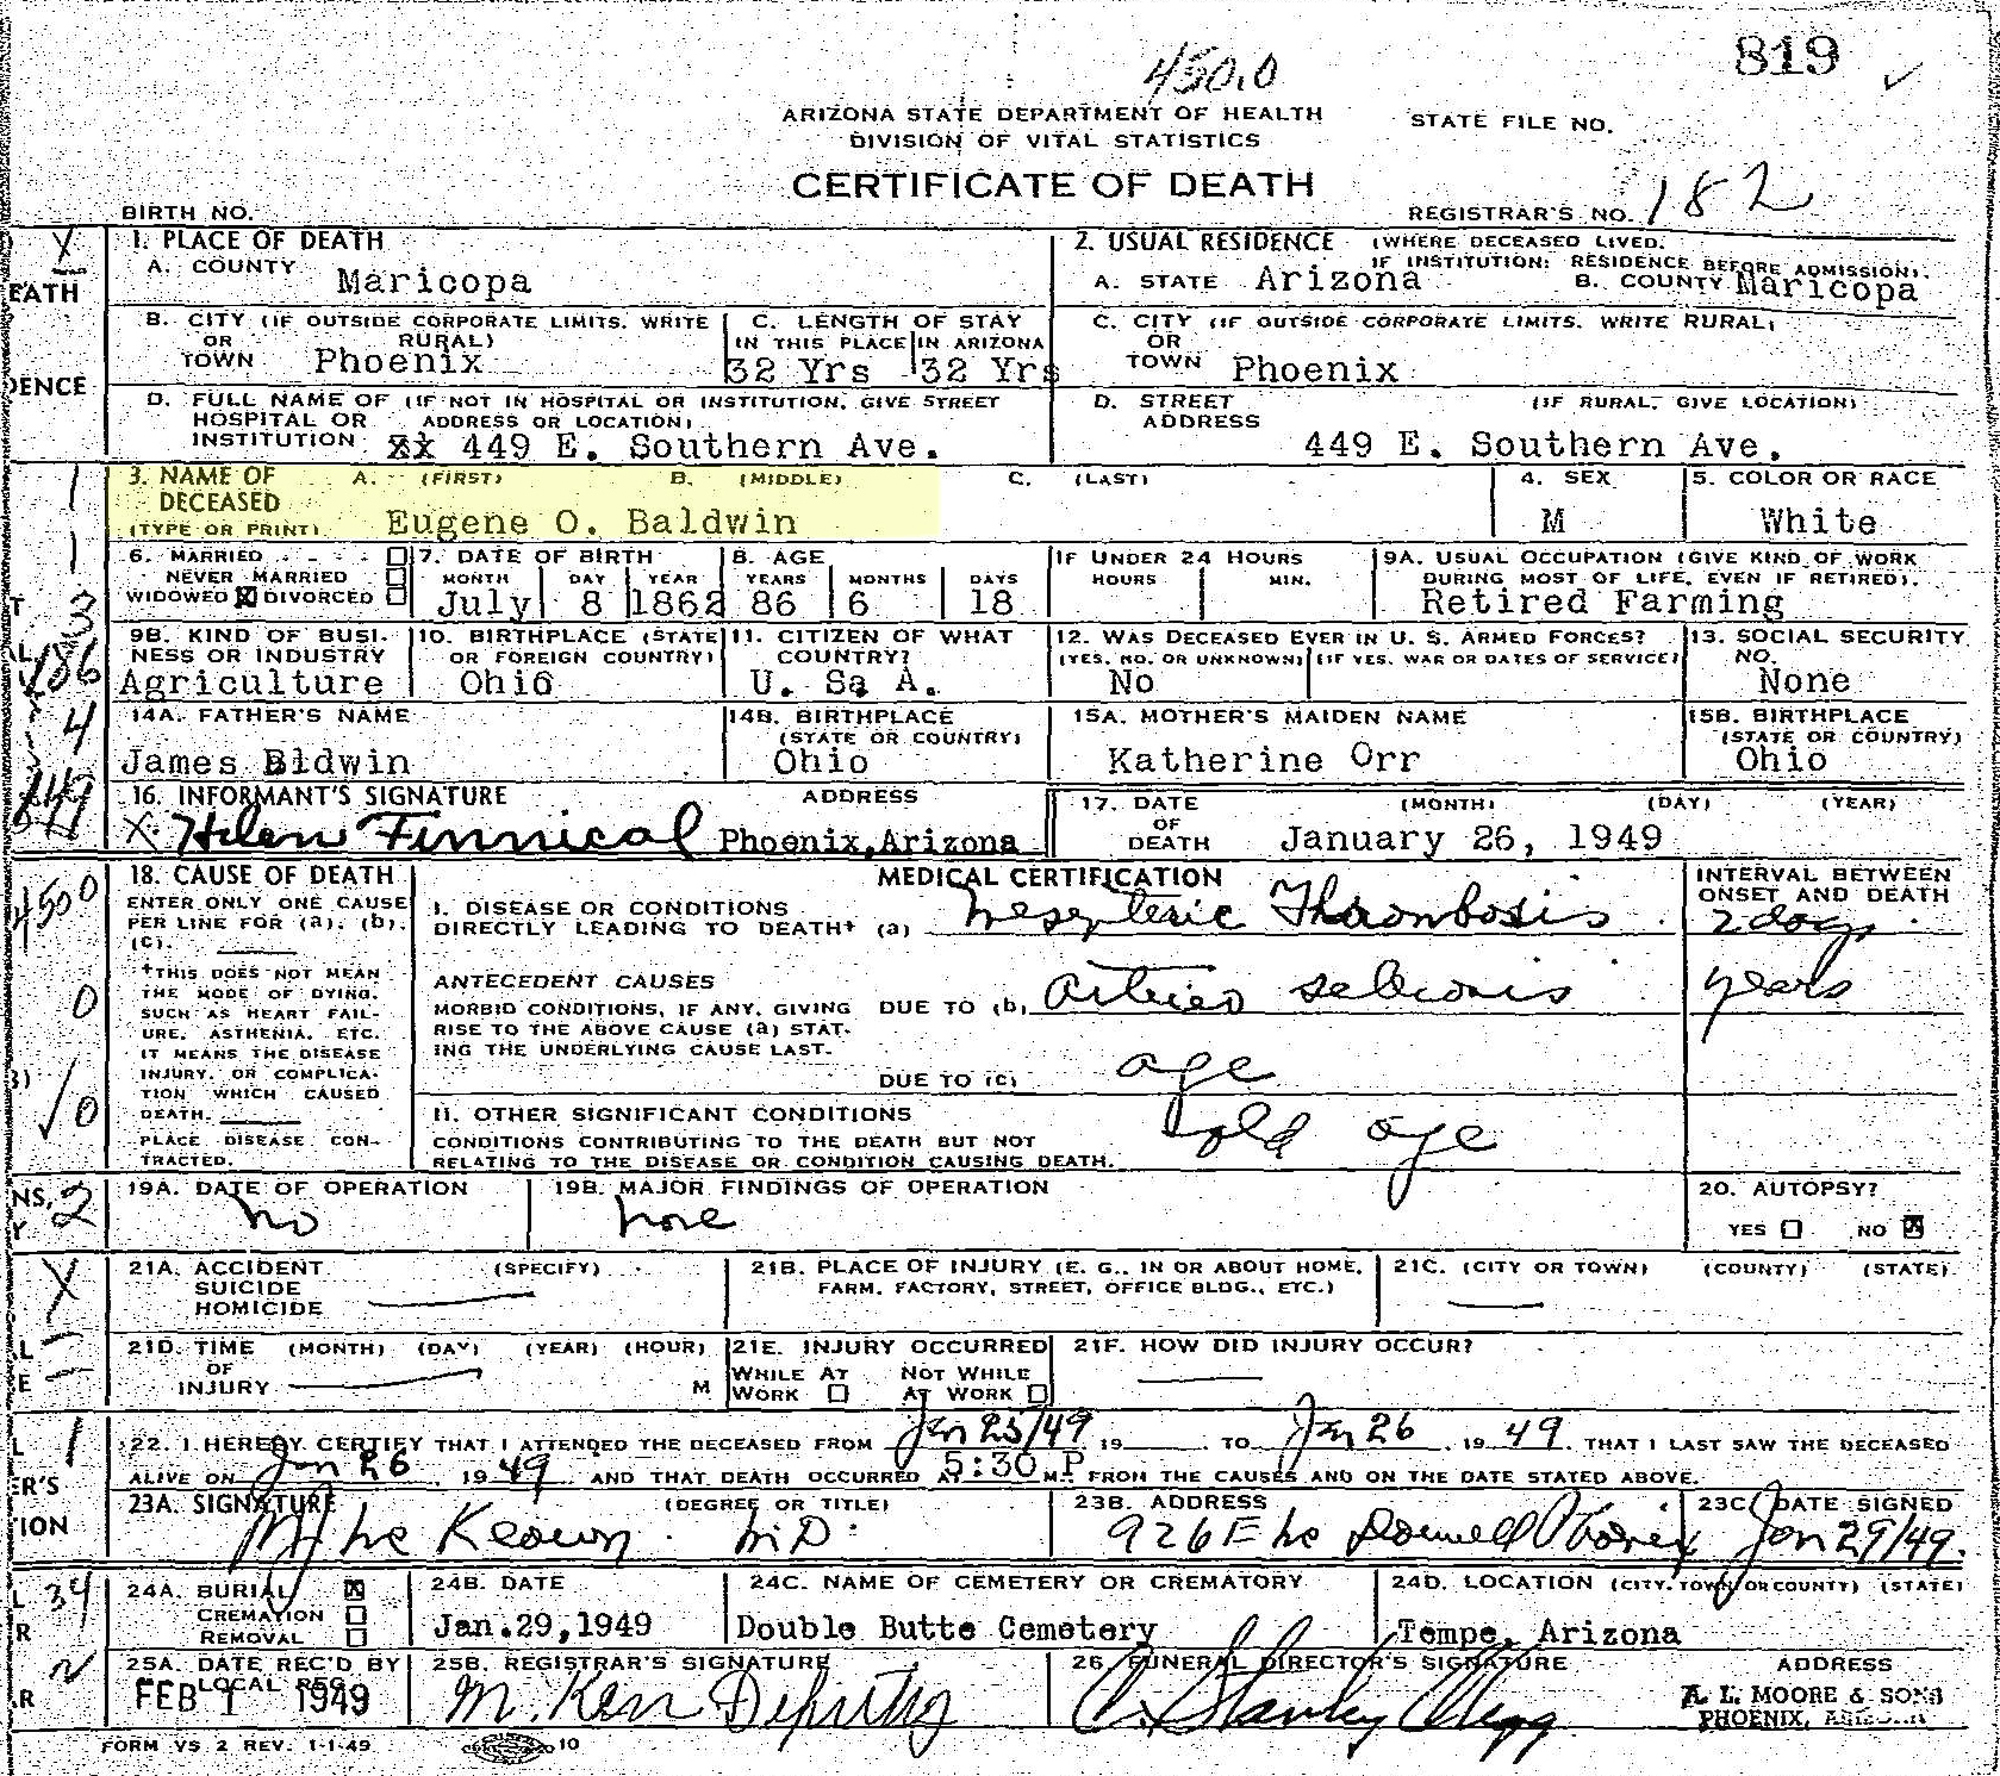 450.0
819
ARIZONA STATE DEPARTMENT OF HEALTH
DIVISION OF VITAL STATISTICS
STATE FILE NO.
CERTIFICATE OF DEATH
BIRTH NO.
REGISTRAR'S NO. 182
X
EATH
1. PLACE OF DEATH
A. COUNTY Maricopa
2. USUAL RESIDENCE (WHERE DECEASED LIVED.
IF INSTITUTION: RESIDENCE BEFORE ADMISSION).
A. STATE Arizona B. COUNTY Maricopa
B. CITY (IF OUTSIDE CORPORATE LIMITS. WRITE
OR RURAL)
TOWN Phoenix
C. LENGTH OF STAY
IN THIS PLACE IN ARIZONA
32 Yrs 32 Yrs
C. CITY (IF OUTSIDE CORPORATE LIMITS. WRITE RURAL)
OR
TOWN Phoenix
DENCE
D. FULL NAME OF (IF NOT IN HOSPITAL OR INSTITUTION, GIVE STREET
HOSPITAL OR ADDRESS OR LOCATION)
INSTITUTION 449 E. Southern Ave.
D. STREET (IF RURAL, GIVE LOCATION)
ADDRESS
449 E. Southern Ave.
1
3. NAME OF A. (FIRST) B. (MIDDLE) C. (LAST)
DECEASED
(TYPE OR PRINT) Eugene O. Baldwin
4. SEX
M
5. COLOR OR RACE
White
1
6. MARRIED
NEVER MARRIED
WIDOWED DIVORCED
T 3
7. DATE OF BIRTH
MONTH DAY YEAR
July 8 1862
8. AGE
YEARS MONTHS DAYS
86 6 18
IF UNDER 24 HOURS
HOURS MIN.
9A. USUAL OCCUPATION (GIVE KIND OF WORK
DURING MOST OF LIFE, EVEN IF RETIRED).
Retired Farming
9B. KIND OF BUSI-
NESS OR INDUSTRY
Agriculture
10. BIRTHPLACE (STATE
OR FOREIGN COUNTRY)
Ohio
11. CITIZEN OF WHAT
COUNTRY?
U. Sa A.
12. WAS DECEASED EVER IN U. S. ARMED FORCES?
(YES, NO, OR UNKNOWN) (IF YES, WAR OR DATES OF SERVICE)
No
13. SOCIAL SECURITY
NO.
None
4
14A. FATHER'S NAME
James Bldwin
14B. BIRTHPLACE
(STATE OR COUNTRY)
Ohio
15A. MOTHER'S MAIDEN NAME
Katherine Orr
15B. BIRTHPLACE
(STATE OR COUNTRY)
Ohio
16. INFORMANT'S SIGNATURE ADDRESS
X Helen Finnical Phoenix, Arizona
17. DATE (MONTH) (DAY) (YEAR)
OF
DEATH January 26, 1949
4500
0
10
18. CAUSE OF DEATH
ENTER ONLY ONE CAUSE
PER LINE FOR (a), (b),
(c).
+THIS DOES NOT MEAN
THE MODE OF DYING,
SUCH AS HEART FAIL-
URE, ASTHENIA, ETC.
IT MEANS THE DISEASE
INJURY, OR COMPLICA-
TION WHICH CAUSED
DEATH.
PLACE DISEASE CON-
TRACTED.
MEDICAL CERTIFICATION
I. DISEASE OR CONDITIONS
DIRECTLY LEADING TO DEATH+ (a) Mesenteric Thrombosis
INTERVAL BETWEEN
ONSET AND DEATH
2 days
ANTECEDENT CAUSES
MORBID CONDITIONS, IF ANY, GIVING DUE TO (b) Arterio sclerosis years
RISE TO THE ABOVE CAUSE (a) STAT-
ING THE UNDERLYING CAUSE LAST.
DUE TO (c) age
II. OTHER SIGNIFICANT CONDITIONS
CONDITIONS CONTRIBUTING TO THE DEATH BUT NOT
RELATING TO THE DISEASE OR CONDITION CAUSING DEATH.
old age
NS, 2
Y
19A. DATE OF OPERATION
no
19B. MAJOR FINDINGS OF OPERATION
none
20. AUTOPSY?
YES NO
X
21A. ACCIDENT (SPECIFY)
SUICIDE
HOMICIDE
21B. PLACE OF INJURY (E. G., IN OR ABOUT HOME,
FARM, FACTORY, STREET, OFFICE BLDG., ETC.)
21C. (CITY OR TOWN) (COUNTY) (STATE)
21D. TIME (MONTH) (DAY) (YEAR) (HOUR)
OF
INJURY M
21E. INJURY OCCURRED
WHILE AT NOT WHILE
WORK AT WORK
21F. HOW DID INJURY OCCUR?
1
22. I HEREBY CERTIFY THAT I ATTENDED THE DECEASED FROM Jan 25/49 19 TO Jan 26 19 49 THAT I LAST SAW THE DECEASED
ALIVE ON Jan 26 19 49 AND THAT DEATH OCCURRED AT 5:30 P M. FROM THE CAUSES AND ON THE DATE STATED ABOVE.
ER'S
TION
23A. SIGNATURE (DEGREE OR TITLE)
Keown M.D.
23B. ADDRESS
926 E Mc Dowell Phoenix
23C. DATE SIGNED
Jan 29/49.
L 34
R
24A. BURIAL
CREMATION
REMOVAL
24B. DATE
Jan. 29, 1949
24C. NAME OF CEMETERY OR CREMATORY
Double Butte Cemetery
24D. LOCATION (CITY, TOWN OR COUNTY) (STATE)
Tempe, Arizona
25A. DATE REC'D BY
LOCAL REG.
FEB 1 1949
25B. REGISTRAR'S SIGNATURE
M. Kerr Deputy
26. FUNERAL DIRECTOR'S SIGNATURE
Stanley
ADDRESS
A. L. MOORE & SONS
PHOENIX, ARIZONA
FORM VS 2 REV. 1-1-49
10